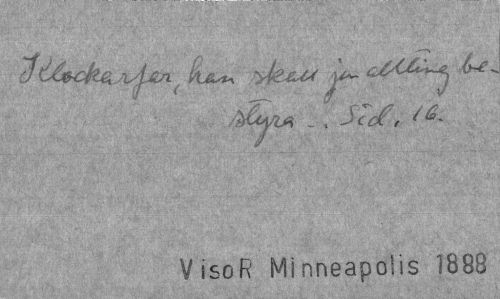 Klockarfar, han skall ju allting be-
styra -. Sid. 16.
VisoR Minneapolis 1888